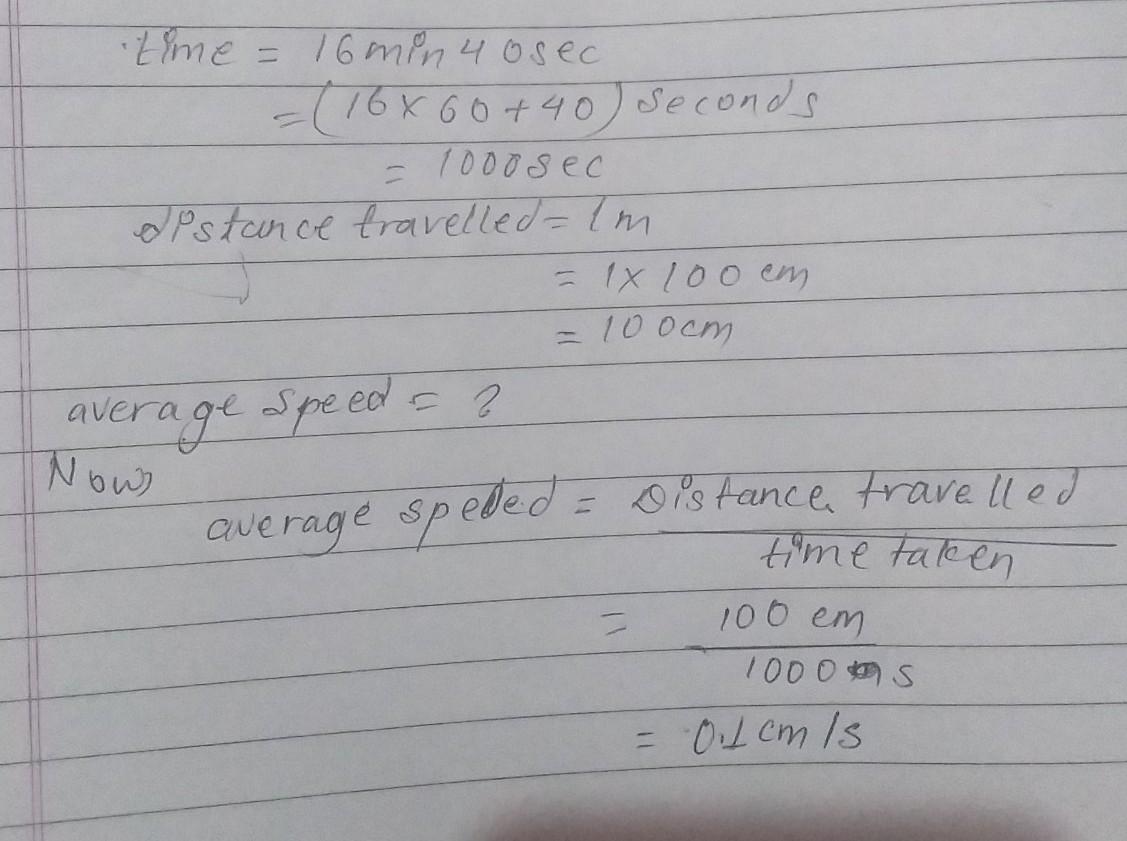 time = 16min 40sec
= (16 x 60 + 40) seconds
= 1000sec
distance travelled = 1m
= 1 x 100 cm
= 100cm
average speed = ?
Now,
average speed = Distance travelled
time taken
= 100 cm
1000 s
= 0.1 cm/s